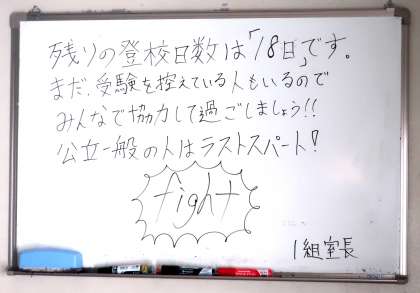 残りの登校日数は「18日」です。
まだ、受験を控えている人もいるので
みんなで協力して過ごしましょう!!
公立一般の人はラストスパート!
fight
1組室長